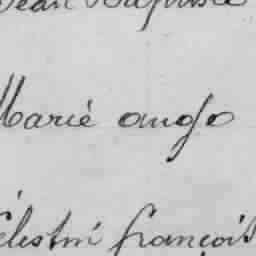 Jean Baptiste
Marie ango
Célestin françois